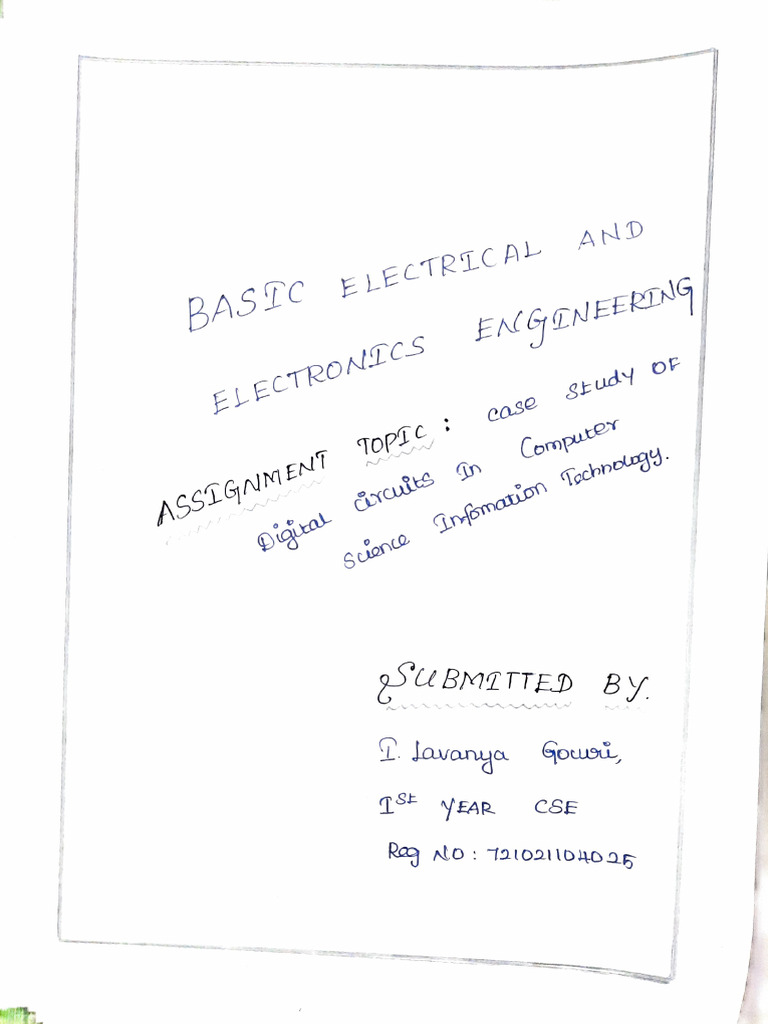 BASIC ELECTRICAL AND
ELECTRONICS ENGINEERING
ASSIGNMENT TOPIC : case study OF
Digital circuits In Computer
Science Infomation Technology.
SUBMITTED BY.
I. Lavanya Gowri,
Ist YEAR CSE
Reg NO : 721021104025